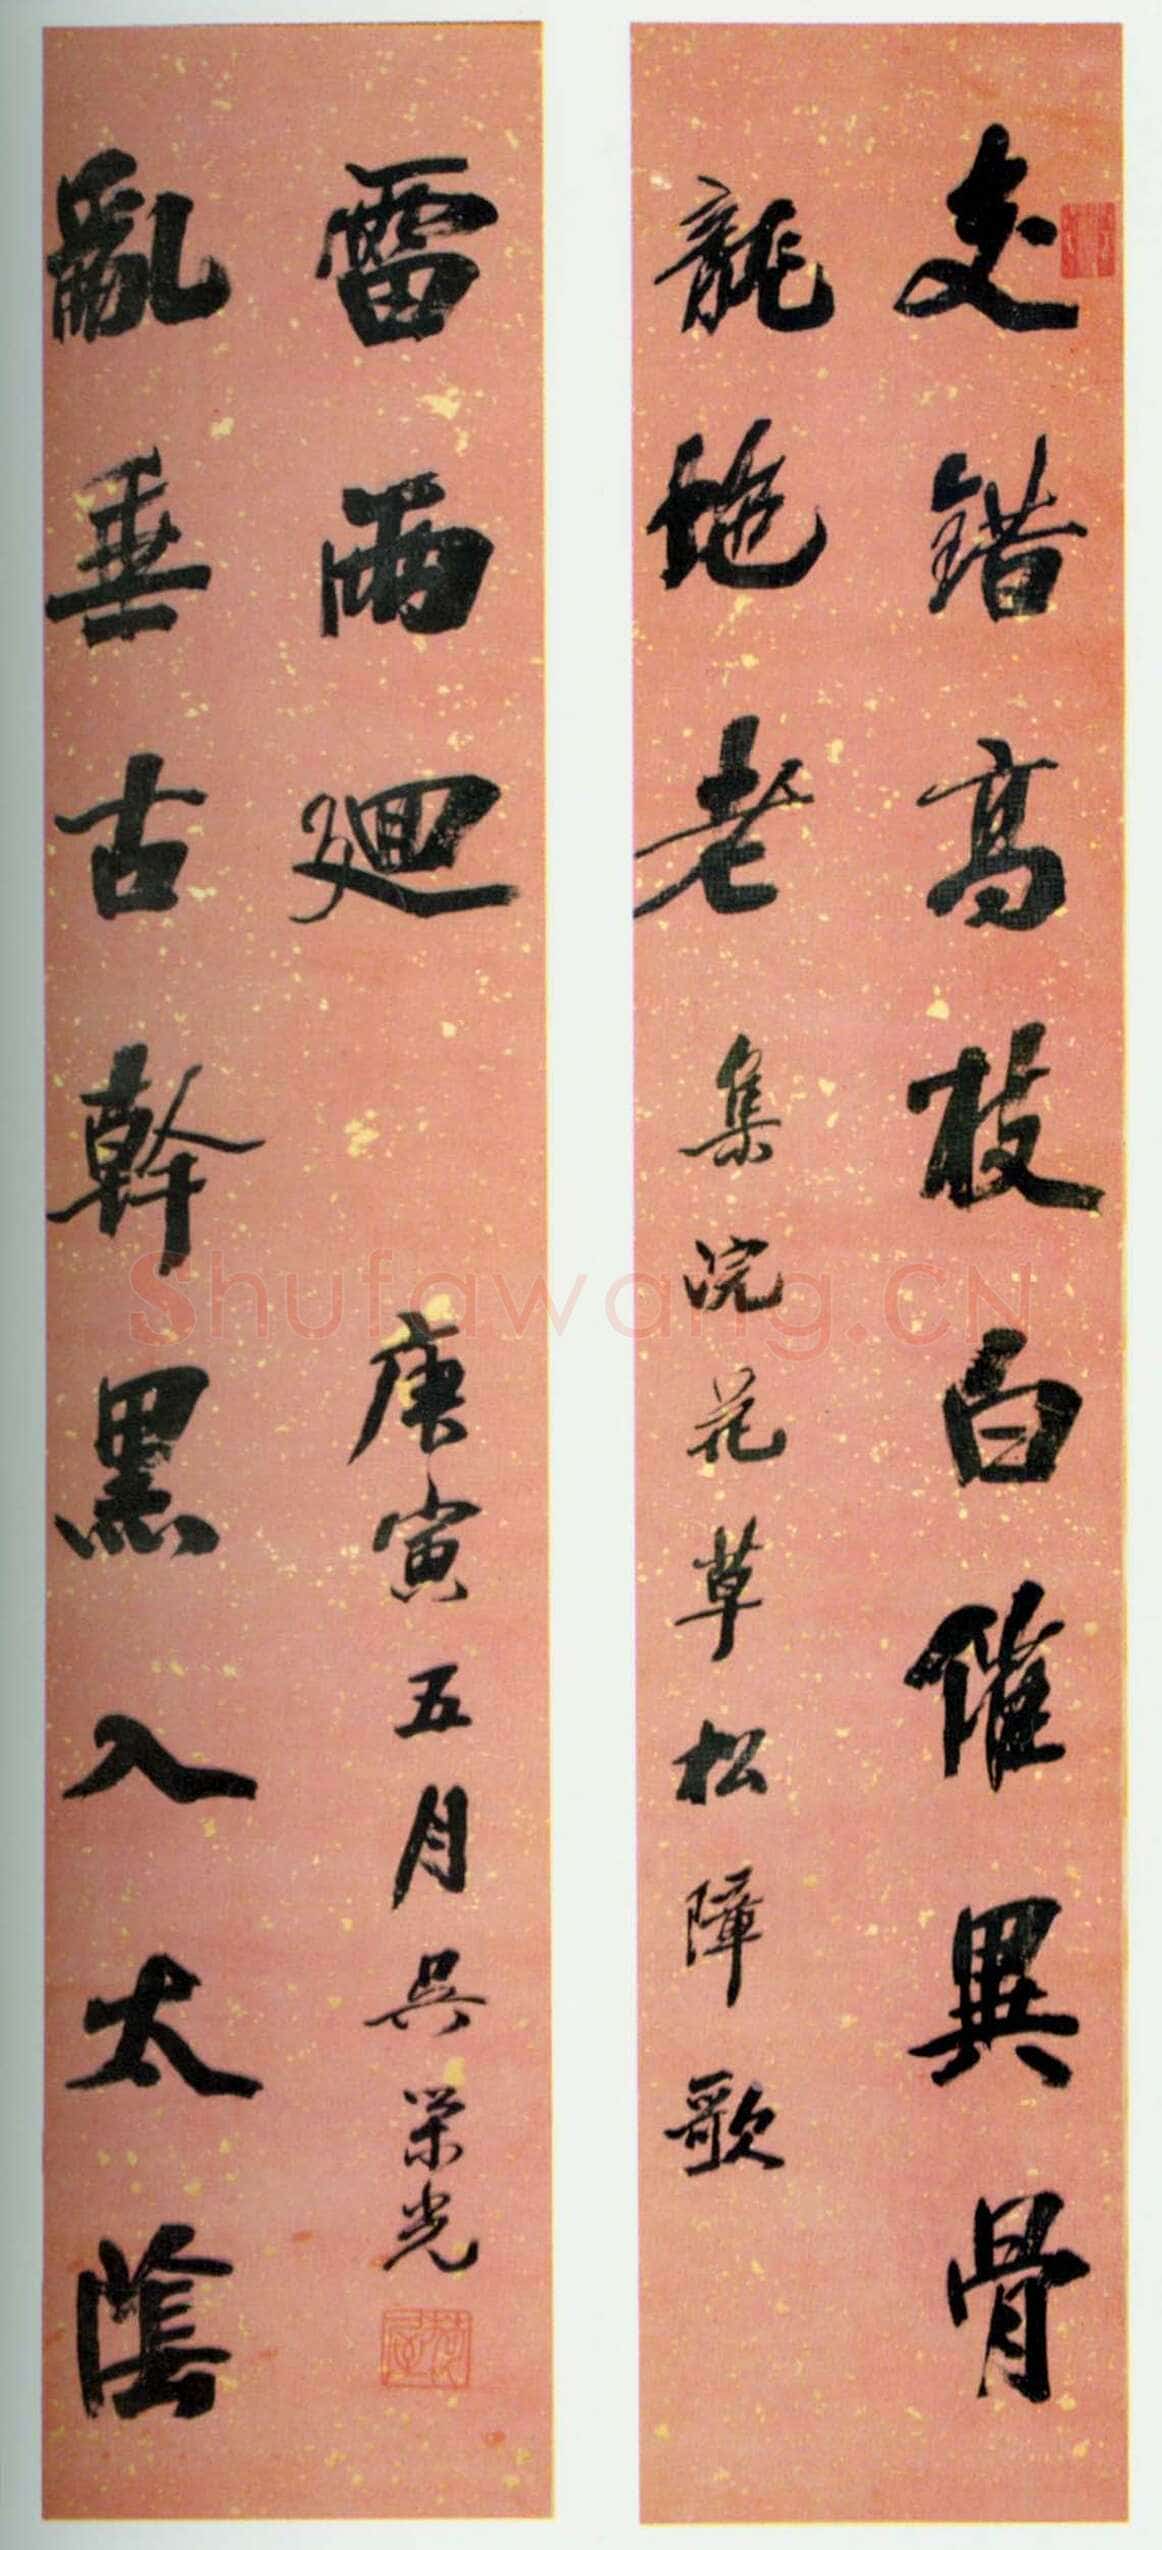 交錯高枝白催異骨
龍虵老
集浣花草松障歌
亂垂古幹黑入太陰
雷雨廻
庚寅五月吳榮光
Shufawang.CN